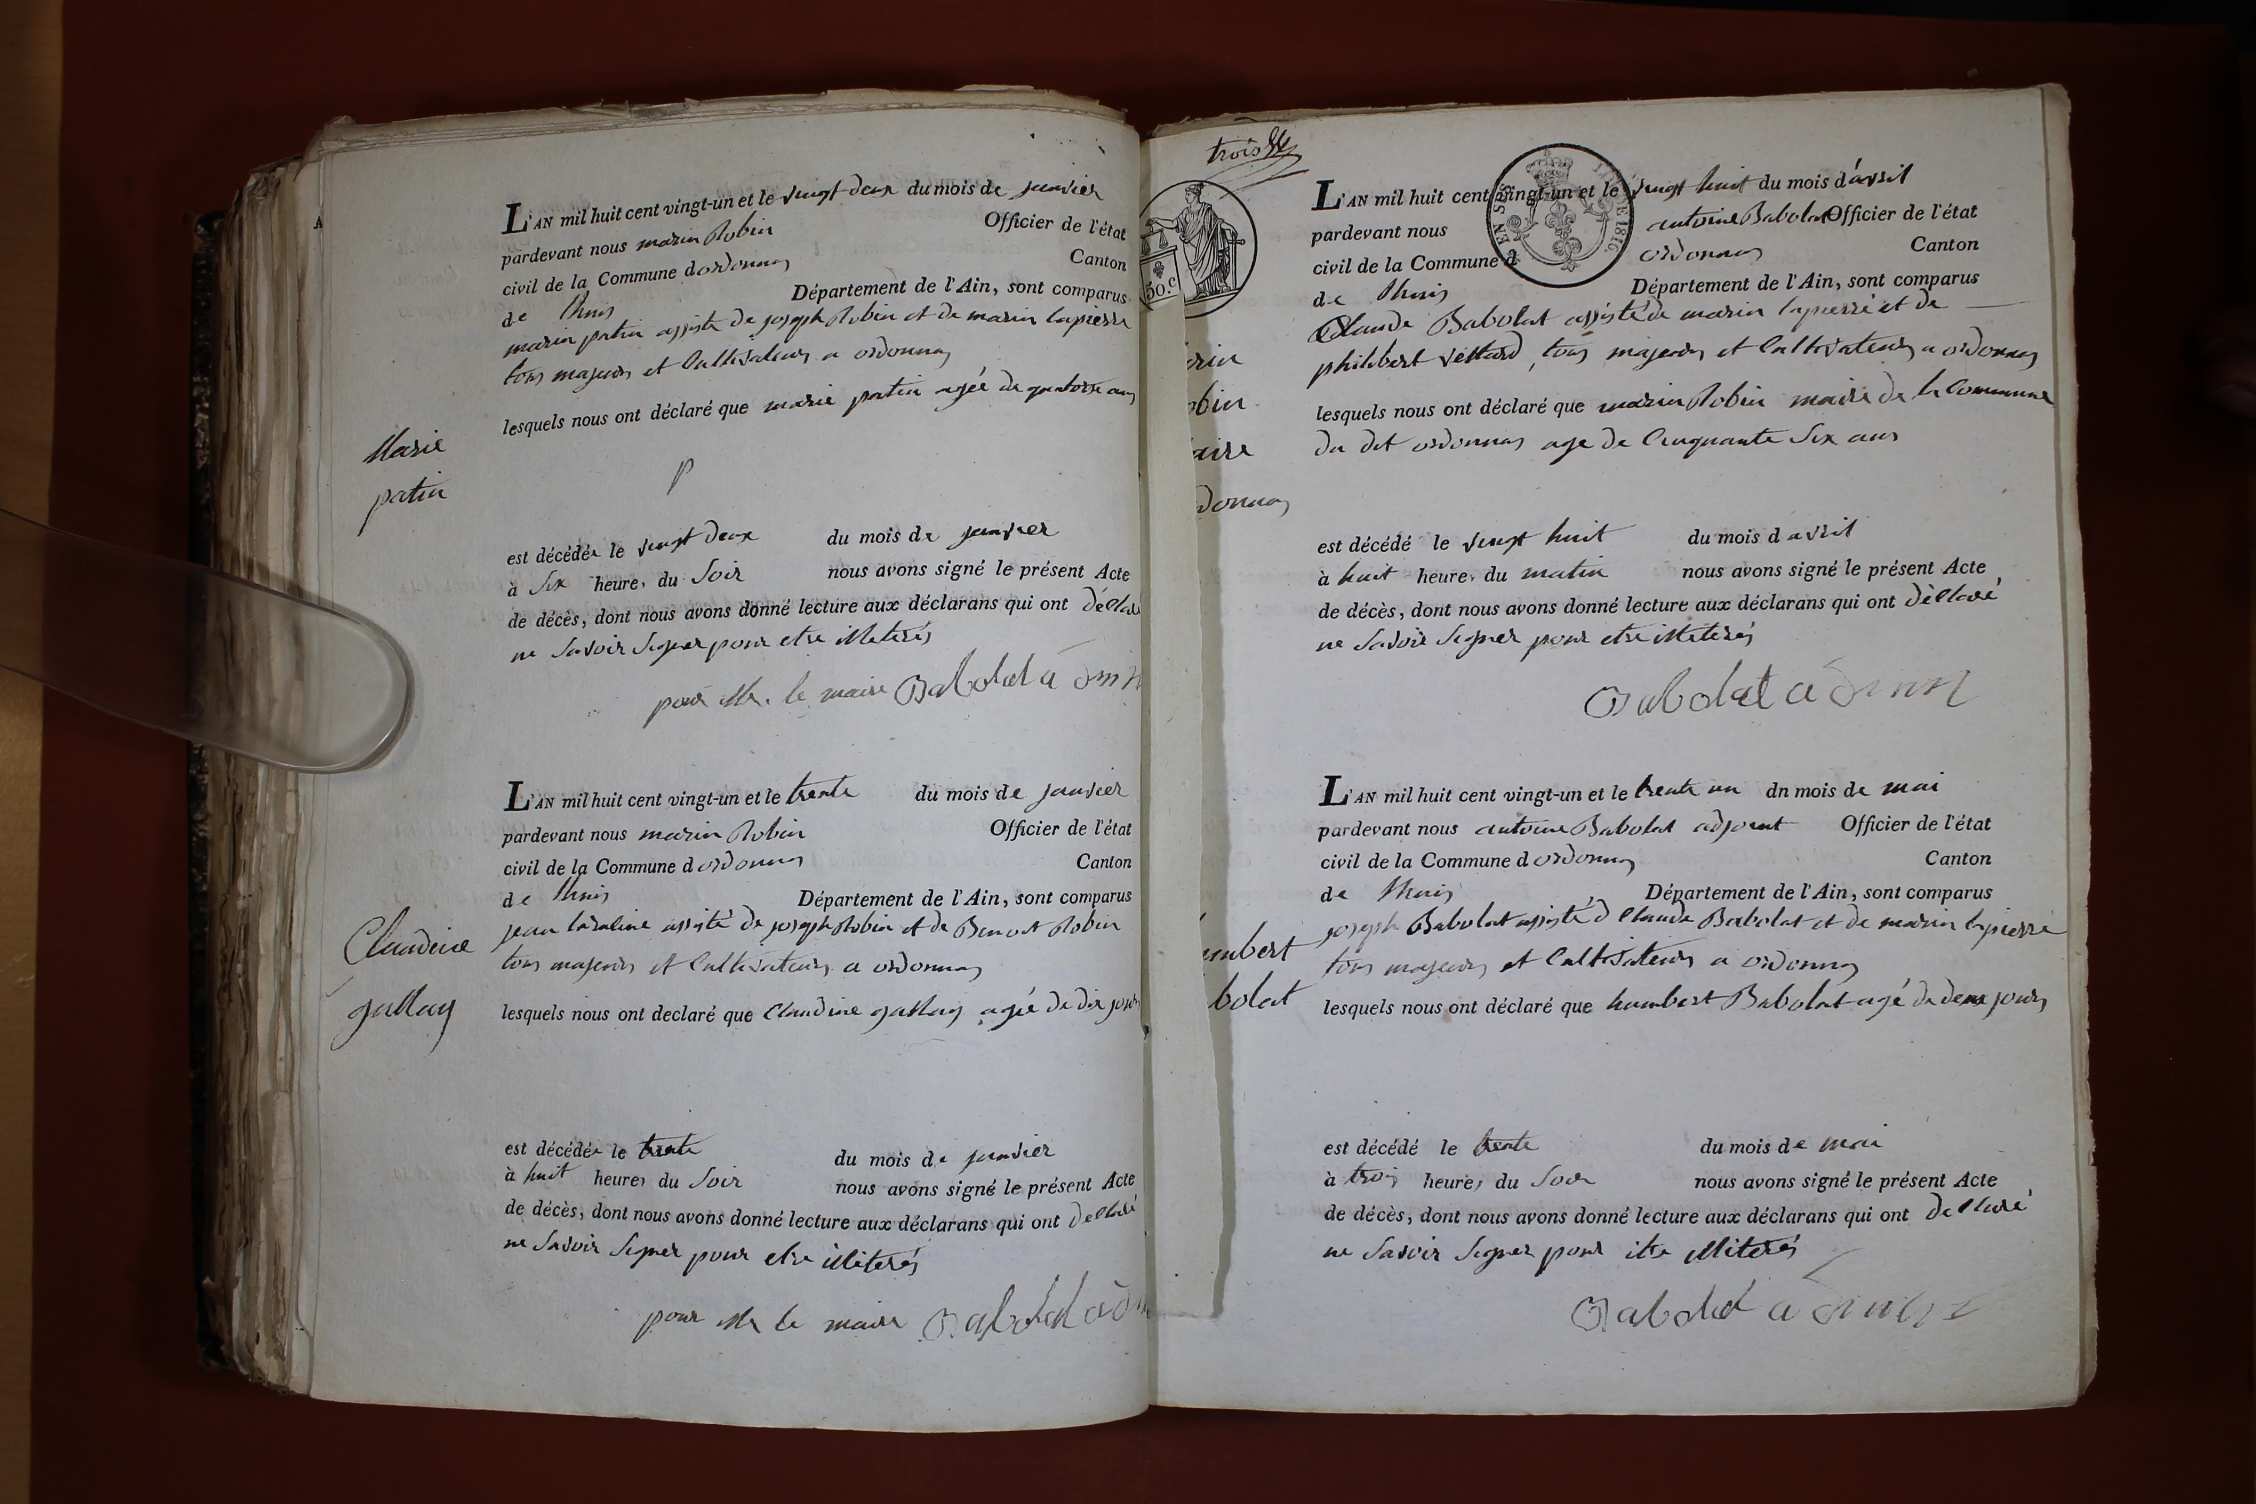 L'AN mil huit cent vingt-un et le vingt deux du mois de janvier
pardevant nous marin Robin Officier de l'état
civil de la Commune d ordonnas Canton
de l'huis Département de l'Ain, sont comparus
marin patin assisté de joseph Robin et de marin lapierre
tous majeurs et Cultivateurs a ordonnas
lesquels nous ont déclaré que marie patin agée de quatorze ans
Marie
patin
p
est décédée le vingt deux du mois de janvier
à Six heures du Soir nous avons signé le présent Acte
de décès, dont nous avons donné lecture aux déclarans qui ont déclaré
ne Savoir Signer pour etre illiterés
pour Mr. le maire Babolat a
L'AN mil huit cent vingt-un et le trente du mois de janvier
pardevant nous marin Robin Officier de l'état
civil de la Commune d ordonnas Canton
de l'huis Département de l'Ain, sont comparus
jean assisté de joseph Robin et de Benoit Robin
tous majeurs et Cultivateurs a ordonnas
Claudine
gallay
lesquels nous ont declaré que Claudine gallay agée de dix jours
est décédée le trente du mois de janvier
à huit heures du Soir nous avons signé le présent Acte
de décès, dont nous avons donné lecture aux déclarans qui ont déclaré
ne Savoir Signer pour etre illiterés
pour Mr le maire Babolat
trois
50.c
L'AN mil huit cent vingt-un et le vingt huit du mois d'avril
pardevant nous antoine Babolat Officier de l'état
civil de la Commune d ordonnas Canton
de l'huis Département de l'Ain, sont comparus
Claude Babolat assisté de marin lapierre et de
philibert vettard, tous majeurs et Cultivateurs a ordonnas
lesquels nous ont déclaré que marin Robin maire de la Commune
du dit ordonnas age de Cinquante Six ans
rin
bin
aire
donnas
est décédé le vingt huit du mois d avril
à huit heures du matin nous avons signé le présent Acte
de décès, dont nous avons donné lecture aux déclarans qui ont déclaré
ne Savoir Signer pour etre illiterés
Babolat a
L'AN mil huit cent vingt-un et le trente un dn mois de mai
pardevant nous antoine Babolat adjoint Officier de l'état
civil de la Commune d ordonnas Canton
de l'huis Département de l'Ain, sont comparus
joseph Babolat assisté d Claude Babolat et de marin lapierre
tous majeurs et Cultivateurs a ordonnas
mbert
bolat
lesquels nous ont déclaré que humbert Babolat agé de deux jours
est décédé le trente du mois de mai
à trois heures du Soir nous avons signé le présent Acte
de décès, dont nous avons donné lecture aux déclarans qui ont déclaré
ne Savoir Signer pour etre illiterés
Babolat a